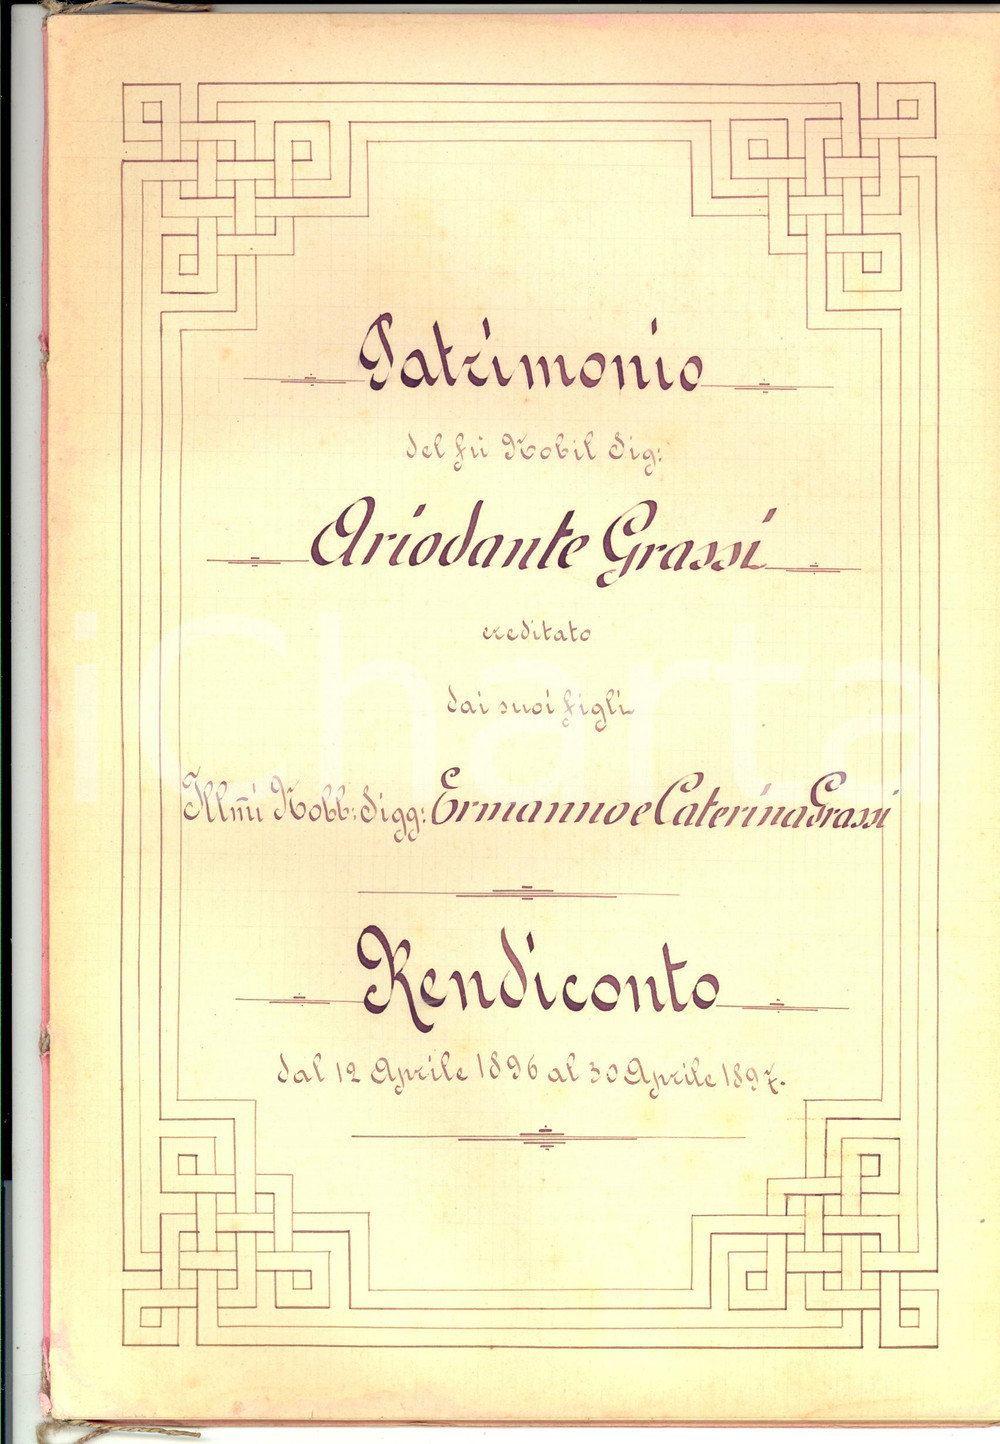 Patrimonio
del fù Nobil Sig:
Ariodante Grassi
ereditato
dai suoi figli
Illmi Nobb: Sigg: Ermanno e Caterina Grassi
Rendiconto
dal 12 Aprile 1896 al 30 Aprile 1897.
iCharta